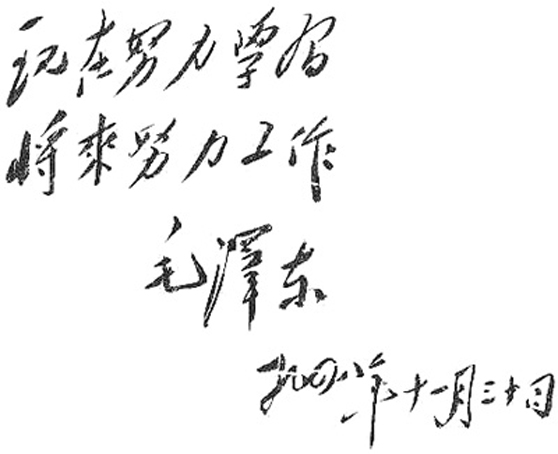 现在努力學習
将來努力工作
毛澤东
一九四八年十一月三十日